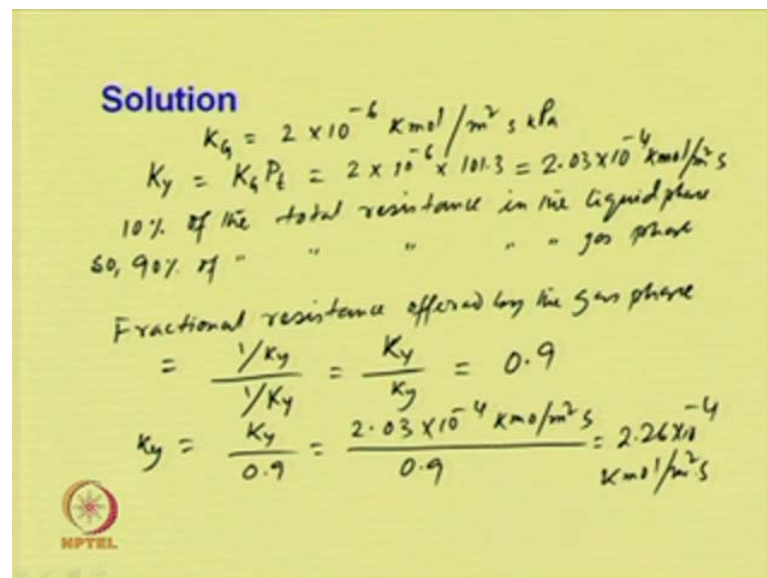 Solution
K_G = 2 × 10^-6 Kmol/m² s kPa
K_y = K_G P_t = 2 × 10^-6 × 101.3 = 2.03×10^-4 kmol/m² s
10% of the total resistance in the liquid phase
so, 90% of " " " " " gas phase
Fractional resistance offered by the gas phase
= (1/k_y)/(1/K_y) = K_y/k_y = 0.9
k_y = K_y/0.9 = (2.03 × 10^-4 Kmo/m² s)/0.9 = 2.26×10^-4
Kmol/m².s
NPTEL